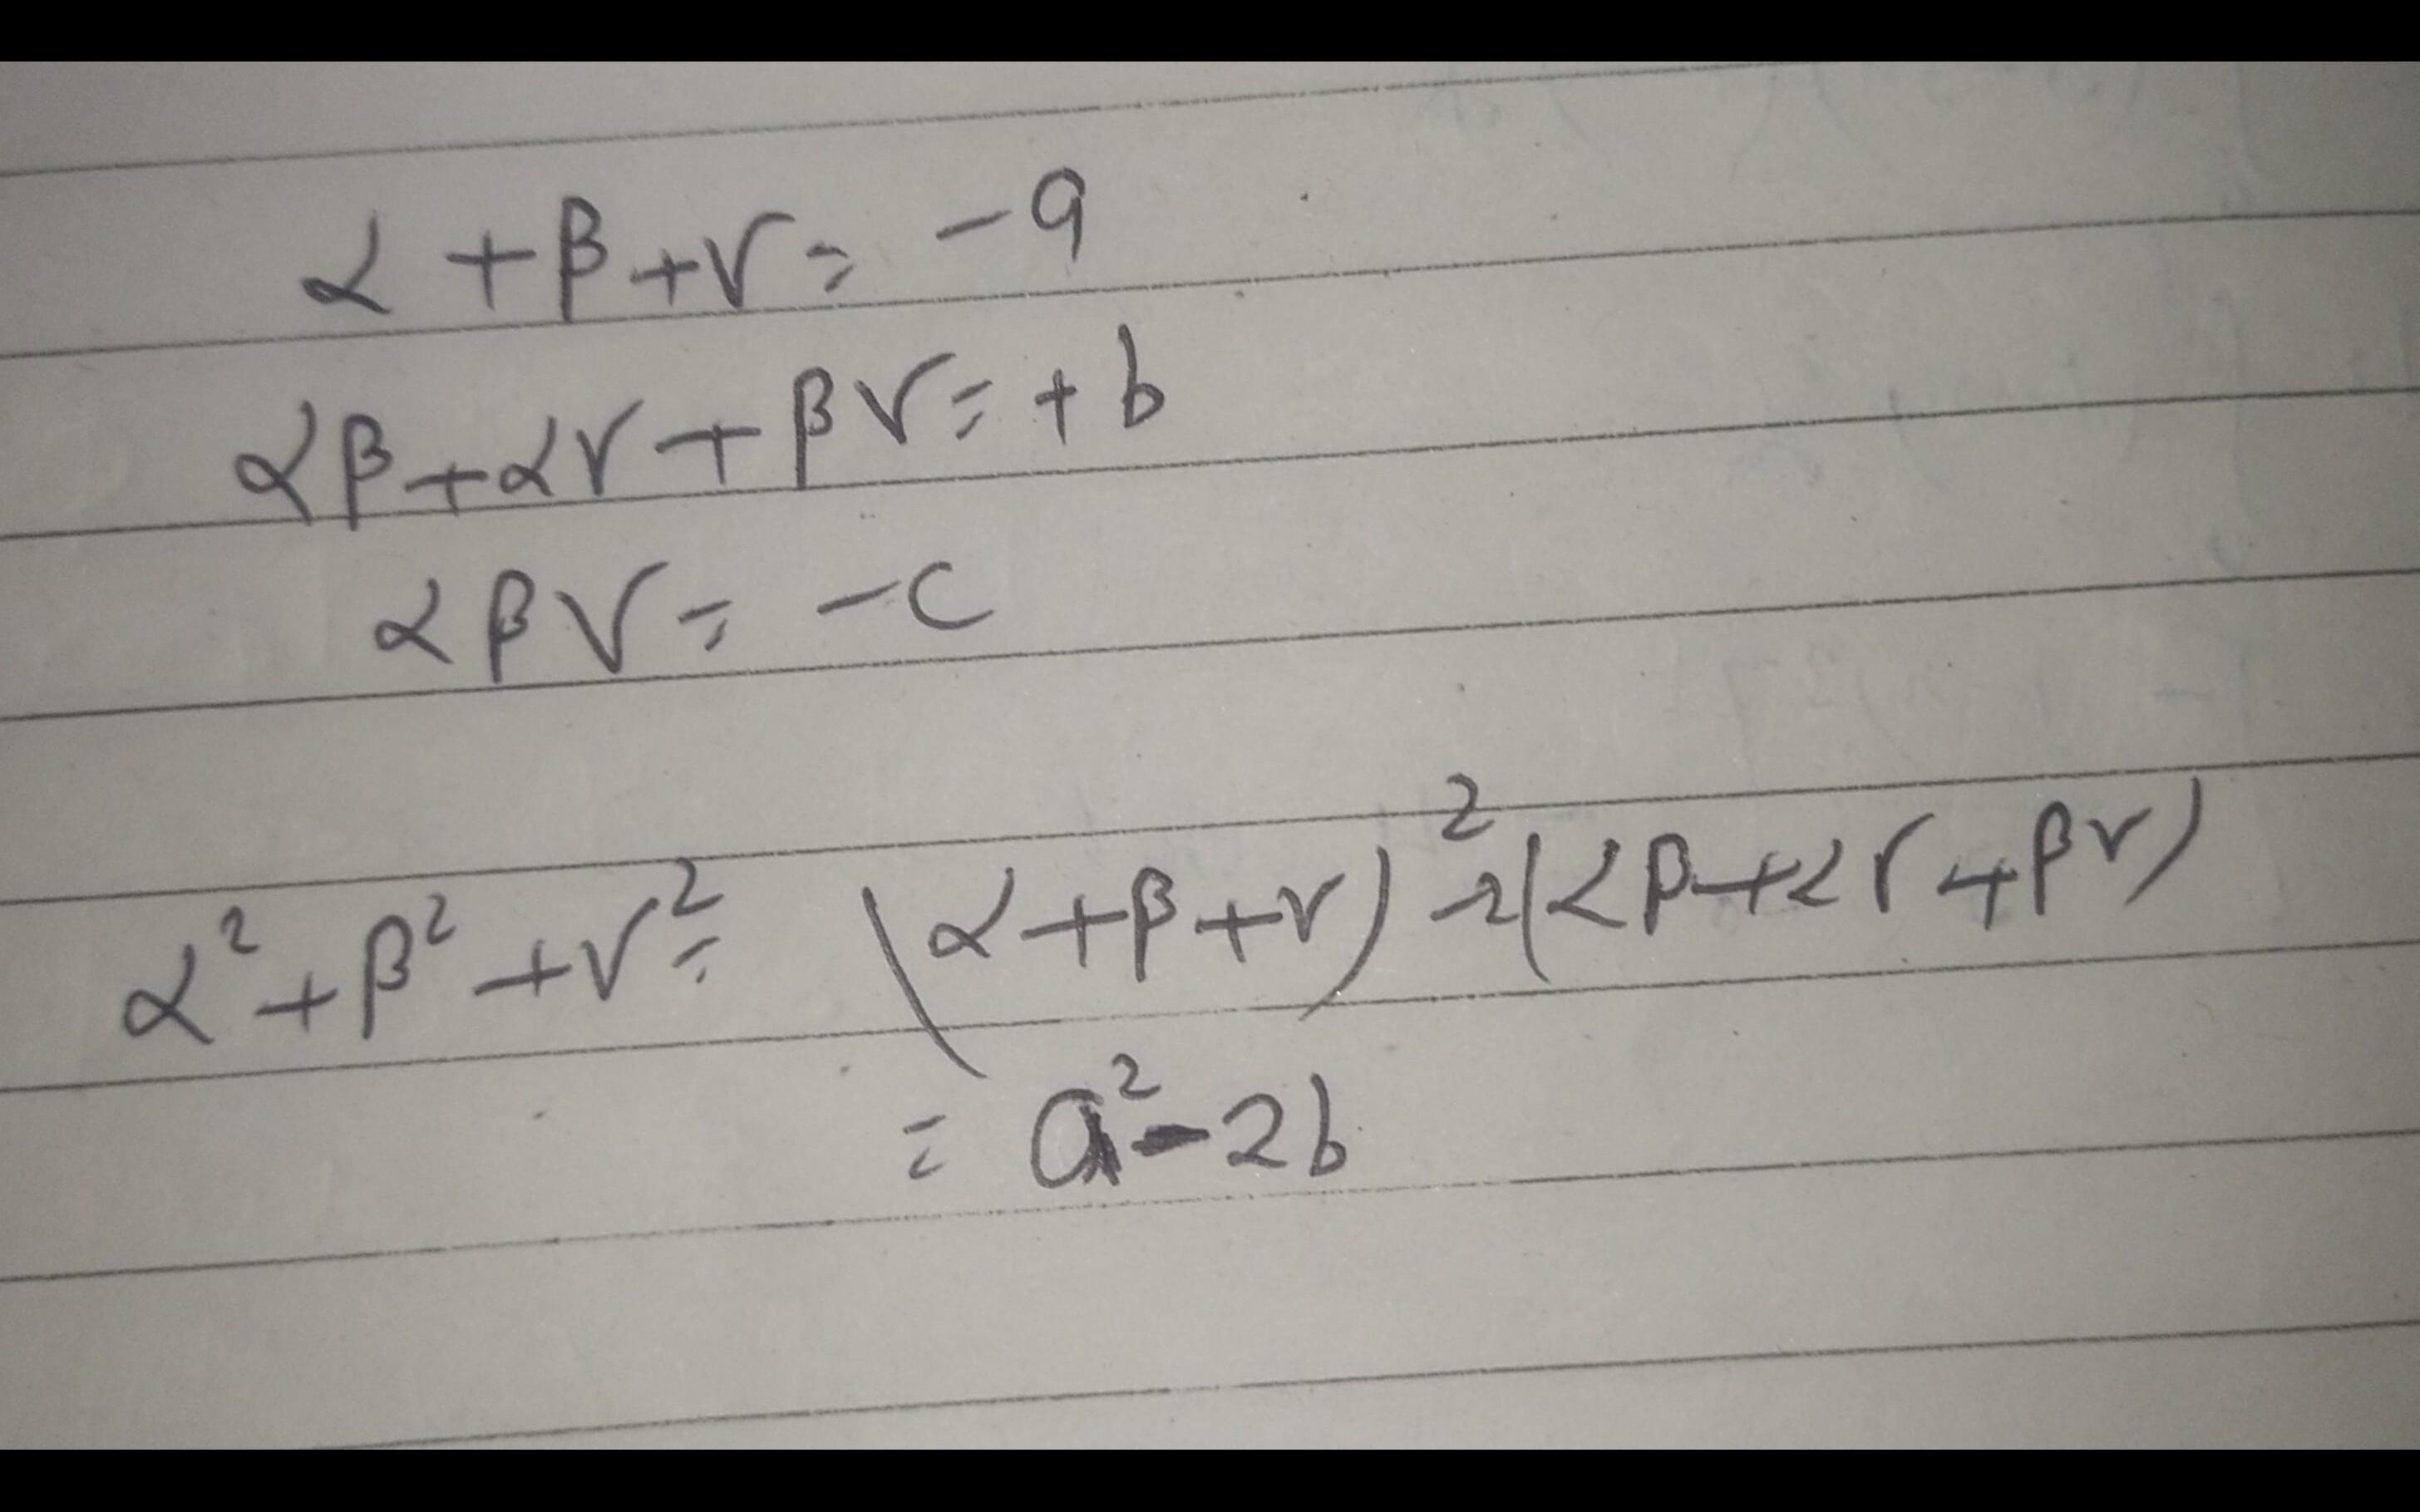 α + β + γ = -a
αβ + αγ + βγ = + b
αβγ = -c
α² + β² + γ² = (α + β + γ)² - 2(αβ + αγ + βγ)
= a² - 2b